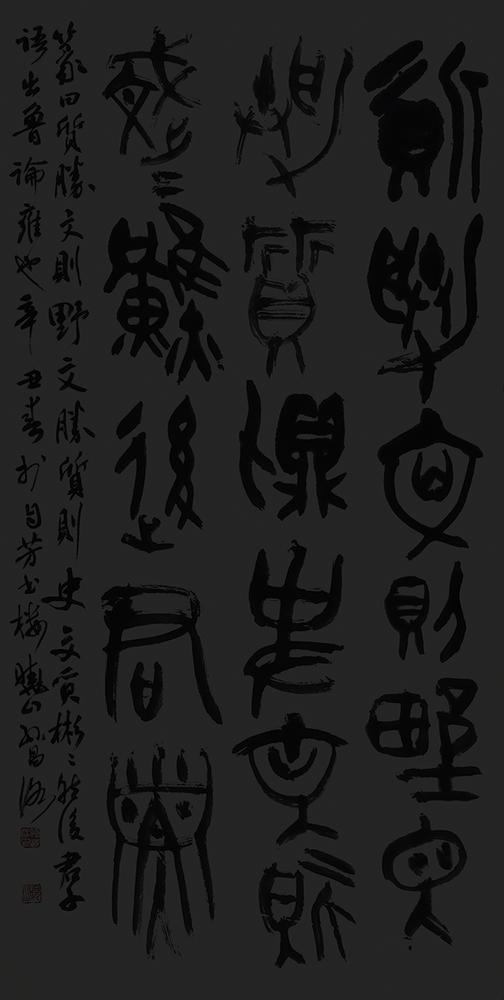 質勝文則野文
勝質則史文質
彬〻然後君子
篆曰質勝文則野文勝質則史文質彬〻然後君子
語出魯論雍也辛丑春於自芳書樓